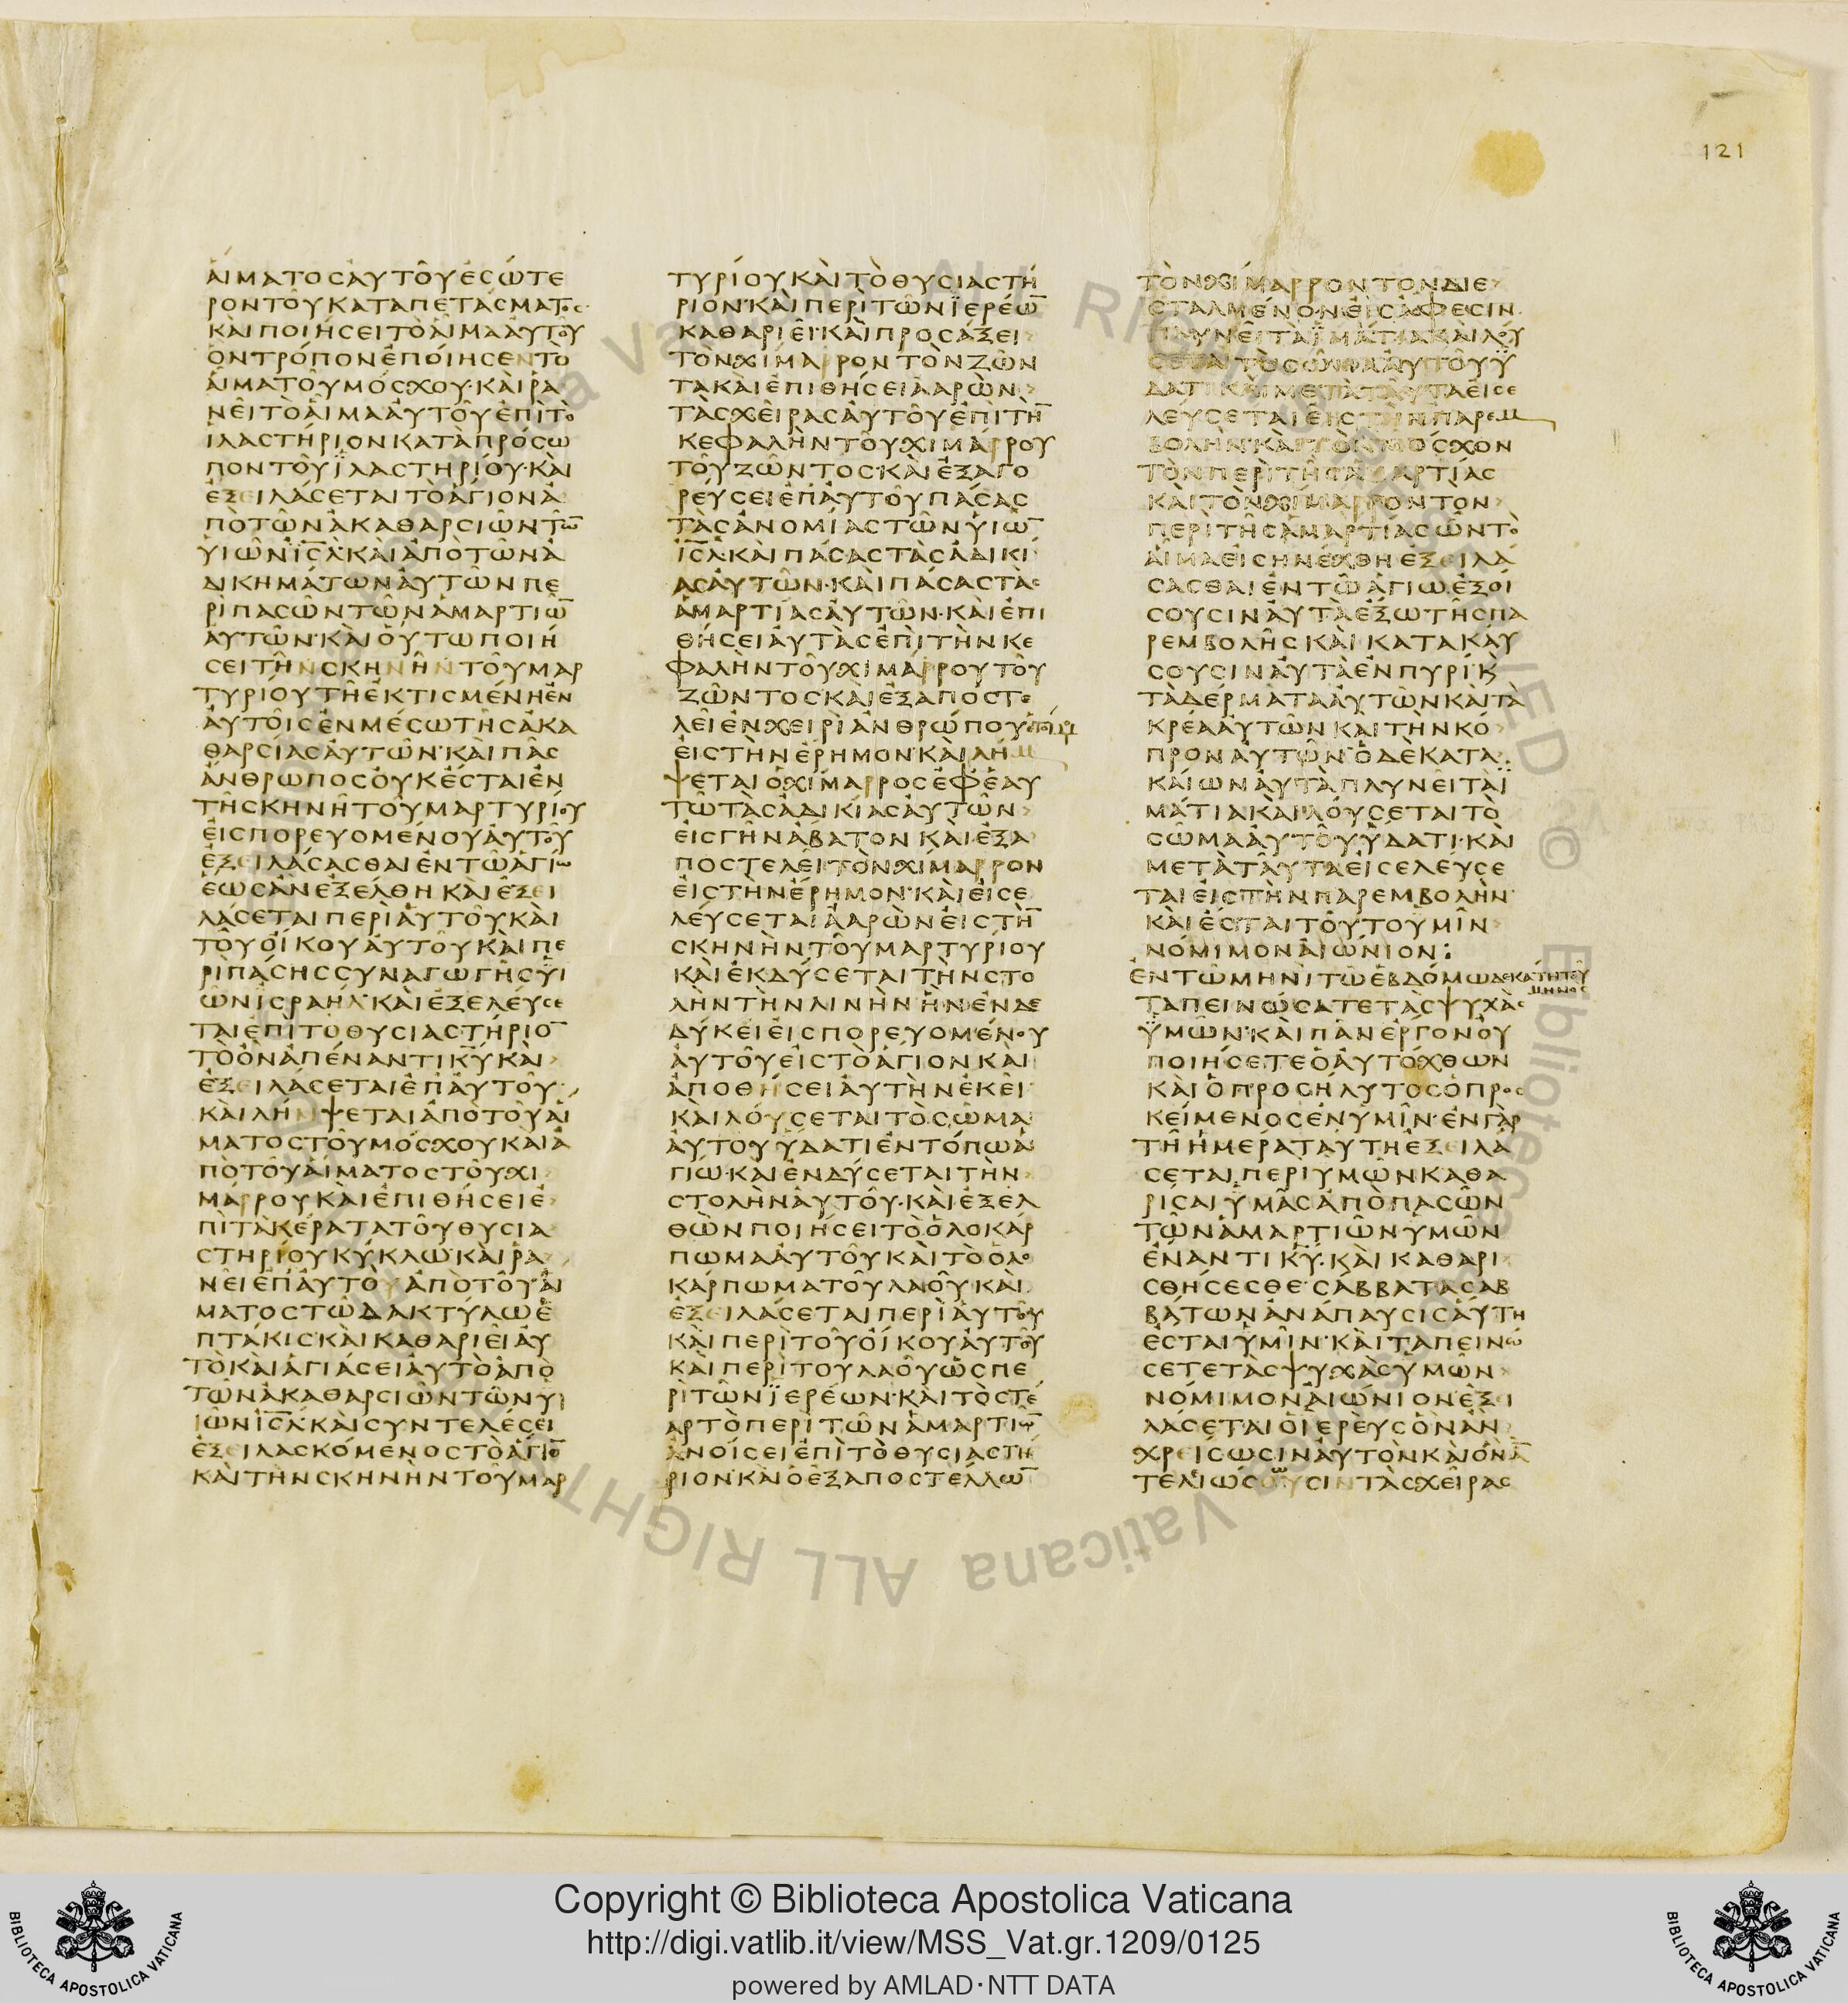 121
ΑΙΜΑΤΟΣ ΑΥΤΟΥ ΕΣΩΤΕ
ΡΟΝ ΤΟΥ ΚΑΤΑΠΕΤΑΣΜΑΤΟΣ·
ΚΑΙ ΠΟΙΗΣΕΙ ΤΟ ΑΙΜΑ ΑΥΤΟΥ
ΟΝ ΤΡΟΠΟΝ ΕΠΟΙΗΣΕΝ ΤΟ
ΑΙΜΑ ΤΟΥ ΜΟΣΧΟΥ· ΚΑΙ ΡΑ
ΝΕΙ ΤΟ ΑΙΜΑ ΑΥΤΟΥ ΕΠΙ ΤΟ
ΙΛΑΣΤΗΡΙΟΝ ΚΑΤΑ ΠΡΟΣΩ
ΠΟΝ ΤΟΥ ΙΛΑΣΤΗΡΙΟΥ· ΚΑΙ
ΕΞΕΙΛΑΣΕΤΑΙ ΤΟ ΑΓΙΟΝ Α
ΠΟ ΤΩΝ ΑΚΑΘΑΡΣΙΩΝ ΤΩ̅
ΥΙΩΝ ΙΣ̅Λ̅ ΚΑΙ ΑΠΟ ΤΩΝ Α
ΔΙΚΗΜΑΤΩΝ ΑΥΤΩΝ ΠΕ
ΡΙ ΠΑΣΩΝ ΤΩΝ ΑΜΑΡΤΙΩ̅
ΑΥΤΩΝ· ΚΑΙ ΟΥΤΩ ΠΟΙΗ
ΣΕΙ ΤΗΝ ΣΚΗΝΗΝ ΤΟΥ ΜΑΡ
ΤΥΡΙΟΥ ΤΗ ΕΚΤΙΣΜΕΝΗ ΕΝ
ΑΥΤΟΙΣ ΕΝ ΜΕΣΩ ΤΗΣ ΑΚΑ
ΘΑΡΣΙΑΣ ΑΥΤΩΝ· ΚΑΙ ΠΑΣ
ΑΝΘΡΩΠΟΣ ΟΥΚ ΕΣΤΑΙ ΕΝ
ΤΗ ΣΚΗΝΗ ΤΟΥ ΜΑΡΤΥΡΙΟΥ
ΕΙΣΠΟΡΕΥΟΜΕΝΟΥ ΑΥΤΟΥ
ΕΞΕΙΛΑΣΑΣΘΑΙ ΕΝ ΤΩ ΑΓΙΩ
ΕΩΣ ΑΝ ΕΞΕΛΘΗ ΚΑΙ ΕΞΕΙ
ΛΑΣΕΤΑΙ ΠΕΡΙ ΑΥΤΟΥ ΚΑΙ
ΤΟΥ ΟΙΚΟΥ ΑΥΤΟΥ ΚΑΙ ΠΕ
ΡΙ ΠΑΣΗΣ ΣΥΝΑΓΩΓΗΣ ΥΙ
ΩΝ ΙΣΡΑΗΛ· ΚΑΙ ΕΞΕΛΕΥΣΕ
ΤΑΙ ΕΠΙ ΤΟ ΘΥΣΙΑΣΤΗΡΙΟ̅
ΤΟ ΟΝ ΑΠΕΝΑΝΤΙ Κ̅Υ̅ ΚΑΙ
ΕΞΕΙΛΑΣΕΤΑΙ ΕΠ ΑΥΤΟΥ·
ΚΑΙ ΛΗΜΨΕΤΑΙ ΑΠΟ ΤΟΥ ΑΙ
ΜΑΤΟΣ ΤΟΥ ΜΟΣΧΟΥ ΚΑΙ Α
ΠΟ ΤΟΥ ΑΙΜΑΤΟΣ ΤΟΥ ΧΙ
ΜΑΡΡΟΥ ΚΑΙ ΕΠΙΘΗΣΕΙ Ε
ΠΙ ΤΑ ΚΕΡΑΤΑ ΤΟΥ ΘΥΣΙΑ
ΣΤΗΡΙΟΥ ΚΥΚΛΩ ΚΑΙ ΡΑ
ΝΕΙ ΕΠ ΑΥΤΟΥ ΑΠΟ ΤΟΥ ΑΙ
ΜΑΤΟΣ ΤΩ ΔΑΚΤΥΛΩ Ε
ΠΤΑΚΙΣ· ΚΑΙ ΚΑΘΑΡΙΕΙ ΑΥ
ΤΟ ΚΑΙ ΑΓΙΑΣΕΙ ΑΥΤΟ ΑΠΟ
ΤΩΝ ΑΚΑΘΑΡΣΙΩΝ ΤΩΝ ΥΙ
ΙΩΝ ΙΣ̅Λ̅· ΚΑΙ ΣΥΝΤΕΛΕΣΕΙ
ΕΞΕΙΛΑΣΚΟΜΕΝΟΣ ΤΟ ΑΓΙΟ̅
ΚΑΙ ΤΗΝ ΣΚΗΝΗΝ ΤΟΥ ΜΑΡ
ΤΥΡΙΟΥ ΚΑΙ ΤΟ ΘΥΣΙΑΣΤΗ
ΡΙΟΝ· ΚΑΙ ΠΕΡΙ ΤΩΝ ΙΕΡΕΩ̅
ΚΑΘΑΡΙΕΙ· ΚΑΙ ΠΡΟΣΑΞΕΙ
ΤΟΝ ΧΙΜΑΡΡΟΝ ΤΟΝ ΖΩΝ
ΤΑ ΚΑΙ ΕΠΙΘΗΣΕΙ ΑΑΡΩΝ
ΤΑΣ ΧΕΙΡΑΣ ΑΥΤΟΥ ΕΠΙ ΤΗ̅
ΚΕΦΑΛΗΝ ΤΟΥ ΧΙΜΑΡΡΟΥ
ΤΟΥ ΖΩΝΤΟΣ· ΚΑΙ ΕΞΑΓΟ
ΡΕΥΣΕΙ ΕΠ ΑΥΤΟΥ ΠΑΣΑΣ
ΤΑΣ ΑΝΟΜΙΑΣ ΤΩΝ ΥΙΩ̅
ΙΣ̅Λ̅· ΚΑΙ ΠΑΣΑΣ ΤΑΣ ΑΔΙΚΙ
ΑΣ ΑΥΤΩΝ· ΚΑΙ ΠΑΣΑΣ ΤΑΣ
ΑΜΑΡΤΙΑΣ ΑΥΤΩΝ· ΚΑΙ ΕΠΙ
ΘΗΣΕΙ ΑΥΤΑΣ ΕΠΙ ΤΗΝ ΚΕ
ΦΑΛΗΝ ΤΟΥ ΧΙΜΑΡΡΟΥ ΤΟΥ
ΖΩΝΤΟΣ· ΚΑΙ ΕΞΑΠΟΣΤΕ
ΛΕΙ ΕΝ ΧΕΙΡΙ ΑΝΘΡΩΠΟΥ
ΕΙΣ ΤΗΝ ΕΡΗΜΟΝ· ΚΑΙ ΛΗΜ
ΨΕΤΑΙ Ο ΧΙΜΑΡΡΟΣ ΕΦ ΕΑΥ
ΤΩ ΤΑΣ ΑΔΙΚΙΑΣ ΑΥΤΩΝ
ΕΙΣ ΓΗΝ ΑΒΑΤΟΝ ΚΑΙ ΕΞΑ
ΠΟΣΤΕΛΕΙ ΤΟΝ ΧΙΜΑΡΡΟΝ
ΕΙΣ ΤΗΝ ΕΡΗΜΟΝ· ΚΑΙ ΕΙΣΕ
ΛΕΥΣΕΤΑΙ ΑΑΡΩΝ ΕΙΣ ΤΗ̅
ΣΚΗΝΗΝ ΤΟΥ ΜΑΡΤΥΡΙΟΥ
ΚΑΙ ΕΚΔΥΣΕΤΑΙ ΤΗΝ ΣΤΟ
ΛΗΝ ΤΗΝ ΛΙΝΗΝ ΗΝ ΕΝΔΕ
ΔΥΚΕΙ ΕΙΣΠΟΡΕΥΟΜΕΝΟΥ
ΑΥΤΟΥ ΕΙΣ ΤΟ ΑΓΙΟΝ ΚΑΙ
ΑΠΟΘΗΣΕΙ ΑΥΤΗΝ ΕΚΕΙ·
ΚΑΙ ΛΟΥΣΕΤΑΙ ΤΟ ΣΩΜΑ
ΑΥΤΟΥ ΥΔΑΤΙ ΕΝ ΤΟΠΩ Α
ΓΙΩ· ΚΑΙ ΕΝΔΥΣΕΤΑΙ ΤΗΝ
ΣΤΟΛΗΝ ΑΥΤΟΥ· ΚΑΙ ΕΞΕΛ
ΘΩΝ ΠΟΙΗΣΕΙ ΤΟ ΟΛΟΚΑΡ
ΠΩΜΑ ΑΥΤΟΥ ΚΑΙ ΤΟ ΟΛΟ
ΚΑΡΠΩΜΑ ΤΟΥ ΛΑΟΥ· ΚΑΙ
ΕΞΕΙΛΑΣΕΤΑΙ ΠΕΡΙ ΑΥΤΟΥ
ΚΑΙ ΠΕΡΙ ΤΟΥ ΟΙΚΟΥ ΑΥΤΟΥ
ΚΑΙ ΠΕΡΙ ΤΟΥ ΛΑΟΥ ΩΣ ΠΕ
ΡΙ ΤΩΝ ΙΕΡΕΩΝ· ΚΑΙ ΤΟ ΣΤΕ
ΑΡ ΤΟ ΠΕΡΙ ΤΩΝ ΑΜΑΡΤΙΩ̅
ΑΝΟΙΣΕΙ ΕΠΙ ΤΟ ΘΥΣΙΑΣΤΗ
ΡΙΟΝ· ΚΑΙ Ο ΕΞΑΠΟΣΤΕΛΛΩ̅
ΤΟΝ ΧΙΜΑΡΡΟΝ ΤΟΝ ΔΙΕ
ΣΤΑΛΜΕΝΟΝ ΕΙΣ ΑΦΕΣΙΝ·
ΠΛΥΝΕΙ ΤΑ ΙΜΑΤΙΑ ΚΑΙ ΛΟΥ
ΣΕΤΑΙ ΤΟ ΣΩΜΑ ΑΥΤΟΥ Υ
ΔΑΤΙ ΚΑΙ ΜΕΤΑ ΤΑΥΤΑ ΕΙΣΕ
ΛΕΥΣΕΤΑΙ ΕΙΣ ΤΗΝ ΠΑΡΕΜ
ΒΟΛΗΝ· ΚΑΙ ΤΟΝ ΜΟΣΧΟΝ
ΤΟΝ ΠΕΡΙ ΤΗΣ ΑΜΑΡΤΙΑΣ
ΚΑΙ ΤΟΝ ΧΙΜΑΡΡΟΝ ΤΟΝ
ΠΕΡΙ ΤΗΣ ΑΜΑΡΤΙΑΣ ΩΝ ΤΟ
ΑΙΜΑ ΕΙΣΗΝΕΧΘΗ ΕΞΕΙΛΑ
ΣΑΣΘΑΙ ΕΝ ΤΩ ΑΓΙΩ ΕΞΟΙ
ΣΟΥΣΙΝ ΑΥΤΑ ΕΞΩ ΤΗΣ ΠΑ
ΡΕΜΒΟΛΗΣ ΚΑΙ ΚΑΤΑΚΑΥ
ΣΟΥΣΙΝ ΑΥΤΑ ΕΝ ΠΥΡΙ· Κ
ΤΑ ΔΕΡΜΑΤΑ ΑΥΤΩΝ ΚΑΙ ΤΑ
ΚΡΕΑ ΑΥΤΩΝ ΚΑΙ ΤΗΝ ΚΟ
ΠΡΟΝ ΑΥΤΩΝ· Ο ΔΕ ΚΑΤΑ
ΚΑΙΩΝ ΑΥΤΑ ΠΛΥΝΕΙ ΤΑ Ι
ΜΑΤΙΑ ΚΑΙ ΛΟΥΣΕΤΑΙ ΤΟ
ΣΩΜΑ ΑΥΤΟΥ ΥΔΑΤΙ· ΚΑΙ
ΜΕΤΑ ΤΑΥΤΑ ΕΙΣΕΛΕΥΣΕ
ΤΑΙ ΕΙΣ ΤΗΝ ΠΑΡΕΜΒΟΛΗΝ·
ΚΑΙ ΕΣΤΑΙ ΤΟΥΤΟ ΥΜΙΝ
ΝΟΜΙΜΟΝ ΑΙΩΝΙΟΝ:
ΕΝ ΤΩ ΜΗΝΙ ΤΩ ΕΒΔΟΜΩ ΔΕΚΑΤΗ ΤΟΥ
ΜΗΝΟΣ
ΤΑΠΕΙΝΩΣΑΤΕ ΤΑΣ ΨΥΧΑΣ
ΥΜΩΝ· ΚΑΙ ΠΑΝ ΕΡΓΟΝ ΟΥ
ΠΟΙΗΣΕΤΕ Ο ΑΥΤΟΧΘΩΝ
ΚΑΙ Ο ΠΡΟΣΗΛΥΤΟΣ Ο ΠΡΟΣ
ΚΕΙΜΕΝΟΣ ΕΝ ΥΜΙΝ· ΕΝ ΓΑΡ
ΤΗ ΗΜΕΡΑ ΤΑΥΤΗ ΕΞΕΙΛΑ
ΣΕΤΑΙ ΠΕΡΙ ΥΜΩΝ ΚΑΘΑ
ΡΙΣΑΙ ΥΜΑΣ ΑΠΟ ΠΑΣΩΝ
ΤΩΝ ΑΜΑΡΤΙΩΝ ΥΜΩΝ
ΕΝΑΝΤΙ Κ̅Υ̅· ΚΑΙ ΚΑΘΑΡΙ
ΣΘΗΣΕΣΘΕ· ΣΑΒΒΑΤΑ ΣΑΒ
ΒΑΤΩΝ ΑΝΑΠΑΥΣΙΣ ΑΥΤΗ
ΕΣΤΑΙ ΥΜΙΝ· ΚΑΙ ΤΑΠΕΙΝΩ
ΣΕΤΕ ΤΑΣ ΨΥΧΑΣ ΥΜΩΝ
ΝΟΜΙΜΟΝ ΑΙΩΝΙΟΝ ΕΞΕΙ
ΛΑΣΕΤΑΙ Ο ΙΕΡΕΥΣ ΟΝ ΑΝ
ΧΡΕΙΣΩΣΙΝ ΑΥΤΟΝ ΚΑΙ ΟΝ Α̅
ΤΕΛΙΩΣΟΥΣΙΝ ΤΑΣ ΧΕΙΡΑΣ
Copyright © Biblioteca Apostolica Vaticana
http://digi.vatlib.it/view/MSS_Vat.gr.1209/0125
powered by AMLAD·NTT DATA
BIBLIOTECA APOSTOLICA VATICANA
BIBLIOTECA APOSTOLICA VATICANA